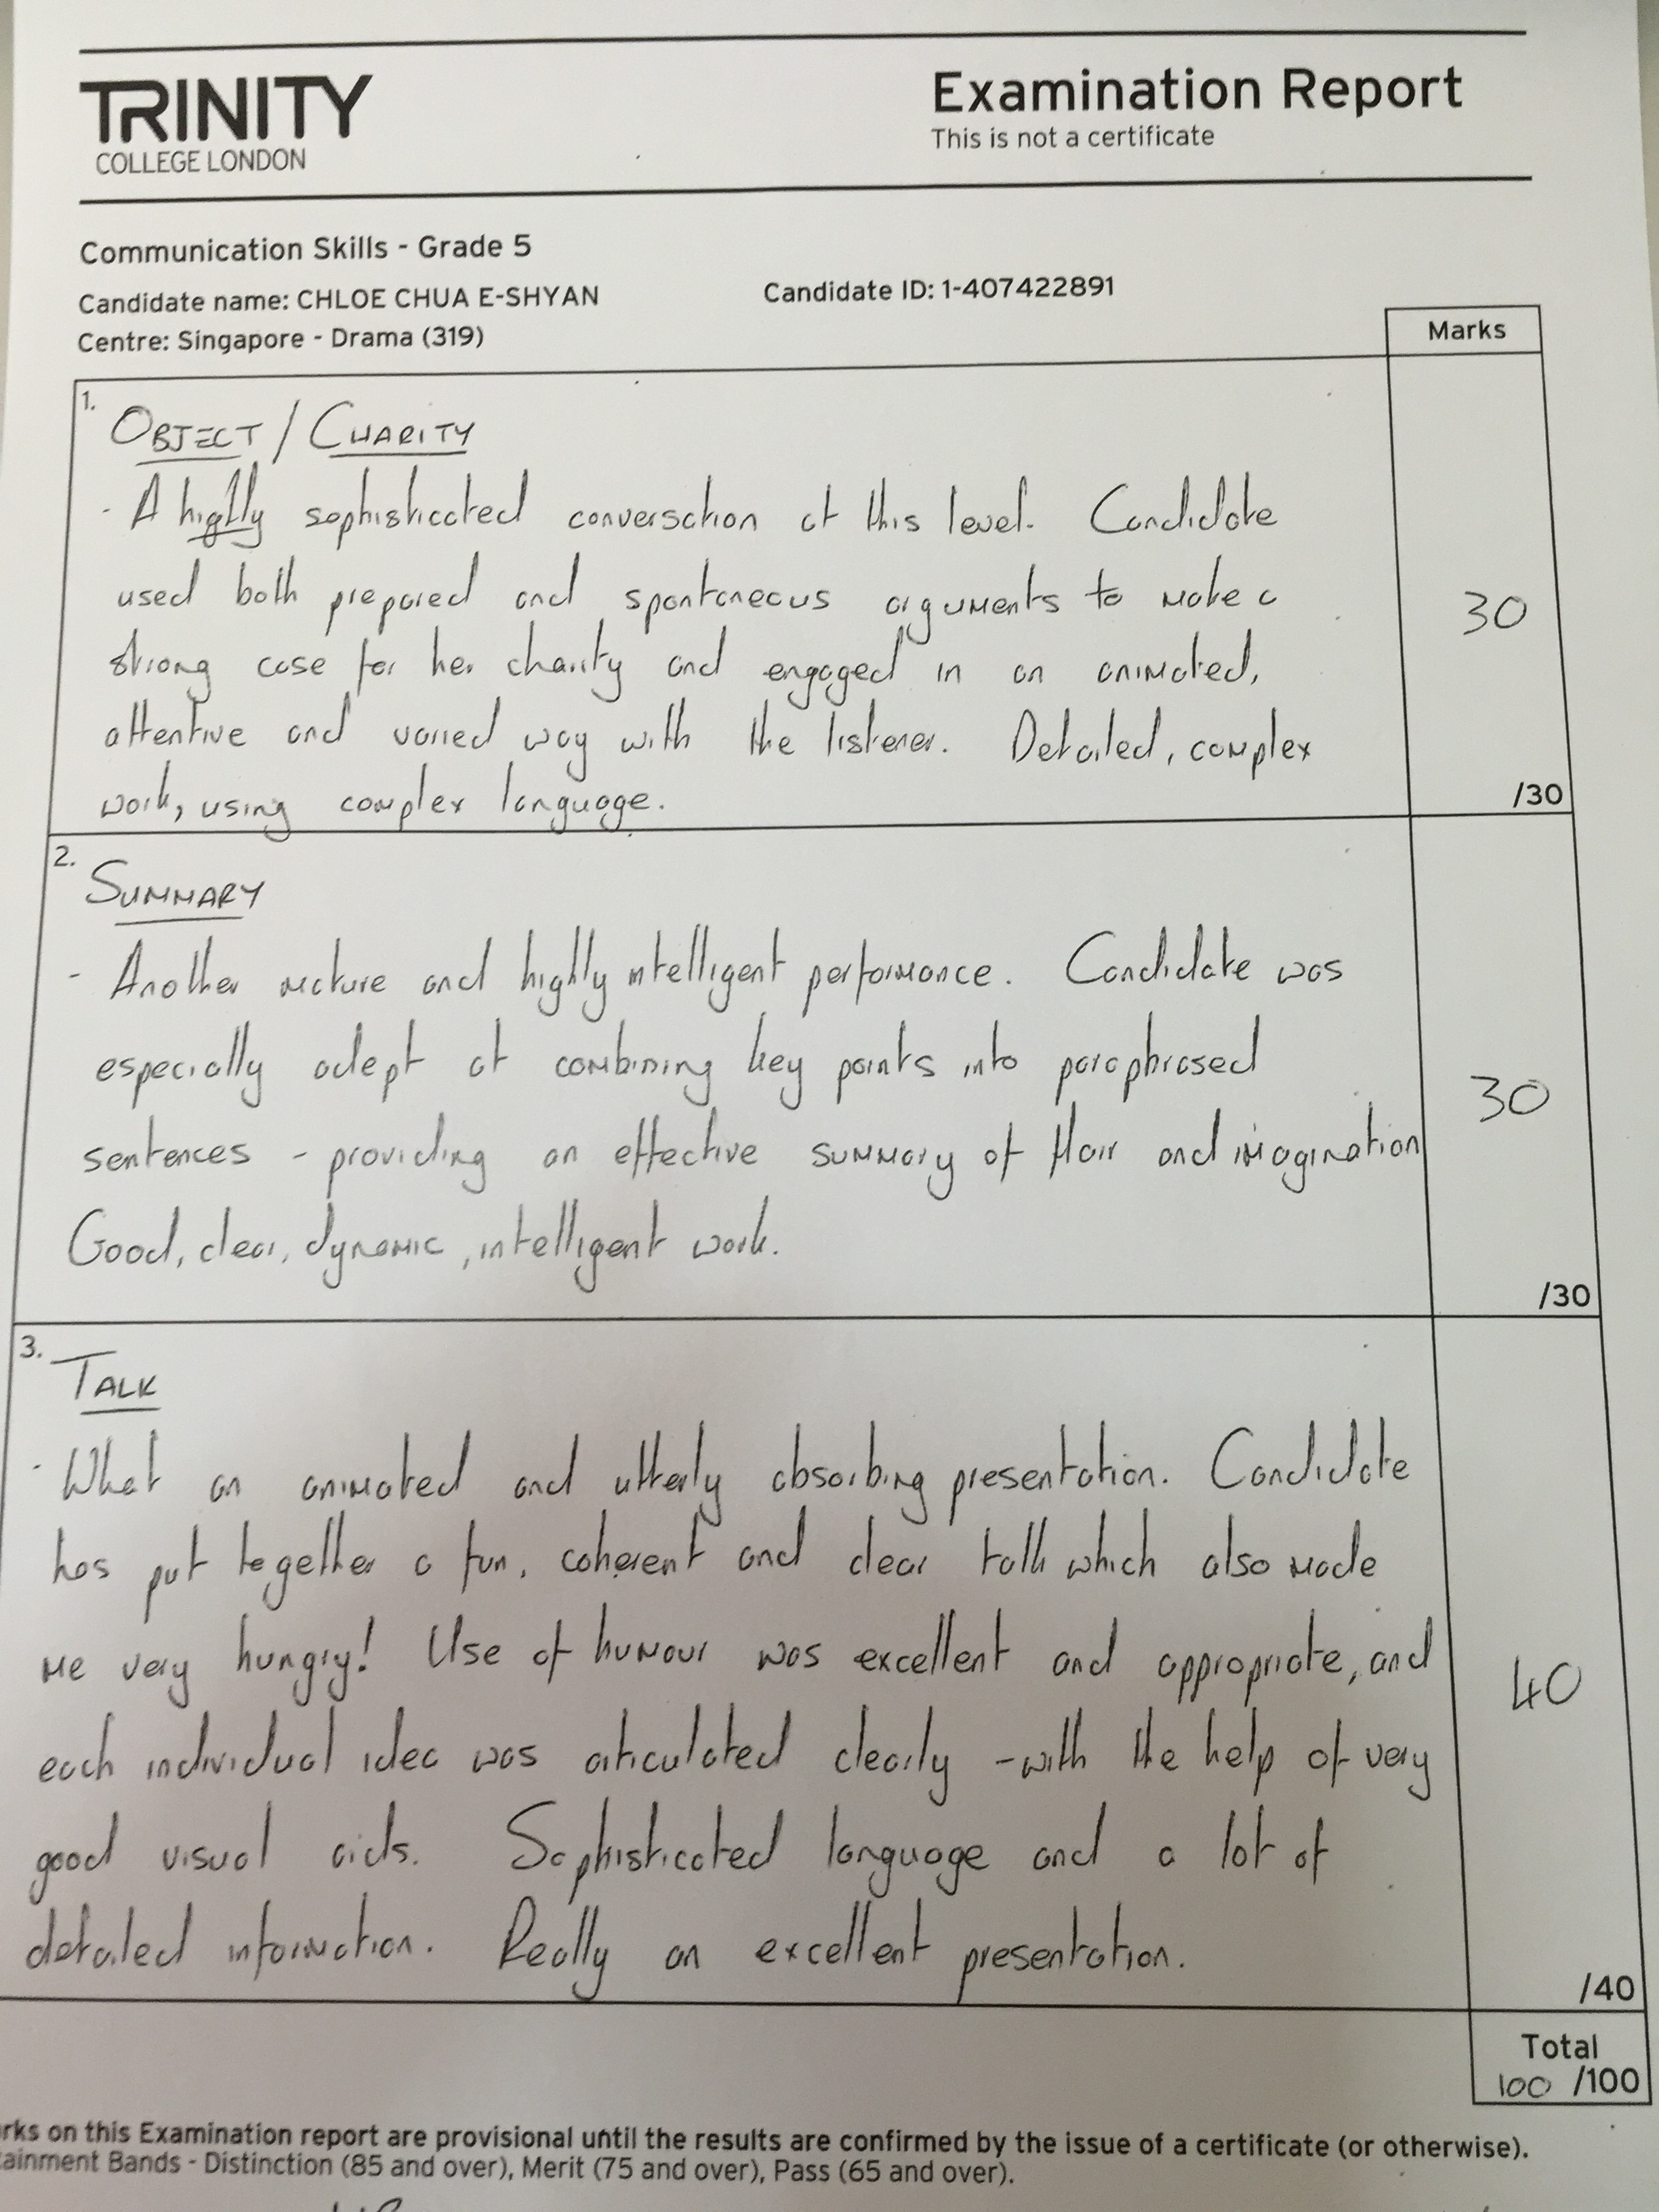 TRINITY
COLLEGE LONDON
Examination Report
This is not a certificate
Communication Skills - Grade 5
Candidate name: CHLOE CHUA E-SHYAN
Candidate ID: 1-407422891
Centre: Singapore - Drama (319)
Marks
1.
OBJECT / CHARITY
- A highly sophisticated conversation at this level. Candidate
used both prepared and spontaneous arguments to make a
strong case for her charity and engaged in an animated,
attentive and varied way with the listener. Detailed, complex
work, using complex language.
30
/30
2.
SUMMARY
- Another mature and highly intelligent performance. Candidate was
especially adept at combining key points into paraphrased
sentences - providing an effective summary of flair and imagination
Good, clear, dynamic, intelligent work.
30
/30
3.
TALK
- What an animated and utterly absorbing presentation. Candidate
has put together a fun, coherent and clear talk which also made
me very hungry! Use of humour was excellent and appropriate, and
each individual idea was articulated clearly - with the help of very
good visual aids. Sophisticated language and a lot of
detailed information. Really an excellent presentation.
40
/40
Total
100 /100
rks on this Examination report are provisional until the results are confirmed by the issue of a certificate (or otherwise).
tainment Bands - Distinction (85 and over), Merit (75 and over), Pass (65 and over).